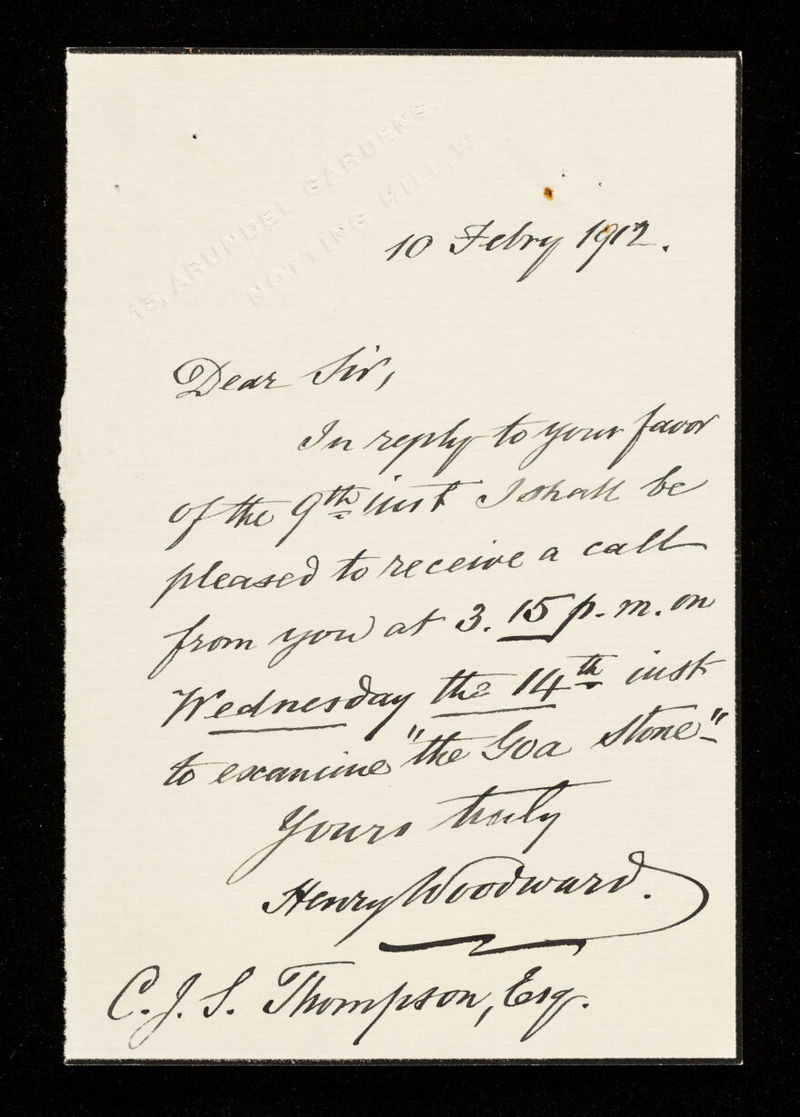 13, ARUNDEL GARDENS,
NOTTING HILL, W.
10 Febry 1912.
Dear Sir,
In reply to your favor
of the 9th inst I shall be
pleased to receive a call
from you at 3.15 p.m. on
Wednesday the 14th inst
to examine "the Goa Stone"
Yours truly
Henry Woodward.
C. J. S. Thompson, Esq.